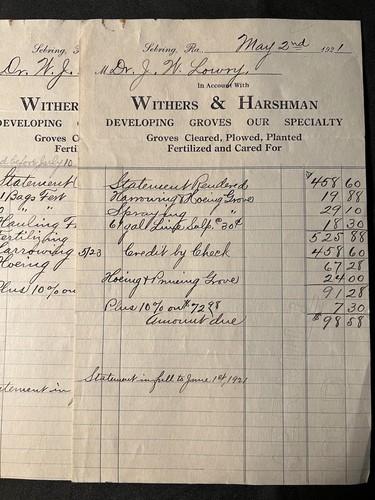 Sebring, Fla. May 2nd 1921
M Dr. J. W. Lowry,
In Account With
WITHERS & HARSHMAN
DEVELOPING GROVES OUR SPECIALTY
Groves Cleared, Plowed, Planted
Fertilized and Cared For
Statement Rendered $458 60
Harrowing & Hoeing Grove 19 88
Spraying " 29 10
61 gall Lime Sulp. @ 30¢ 18 30
525 88
5/23 Credit by Check 458 60
67 28
Hoeing & Pruning Grove 24 00
91 28
Plus 10% on $72 98 7 30
Amount due $98 58
Statement in full to June 1st, 1921
Sebring,
Dr. W. J.
WITHER
DEVELOPING
Groves C
Ferti
Statement
Bags Fert
Hauling F
Fertilizing
Harrowing
Hoeing
Plus 10% on
Statement in